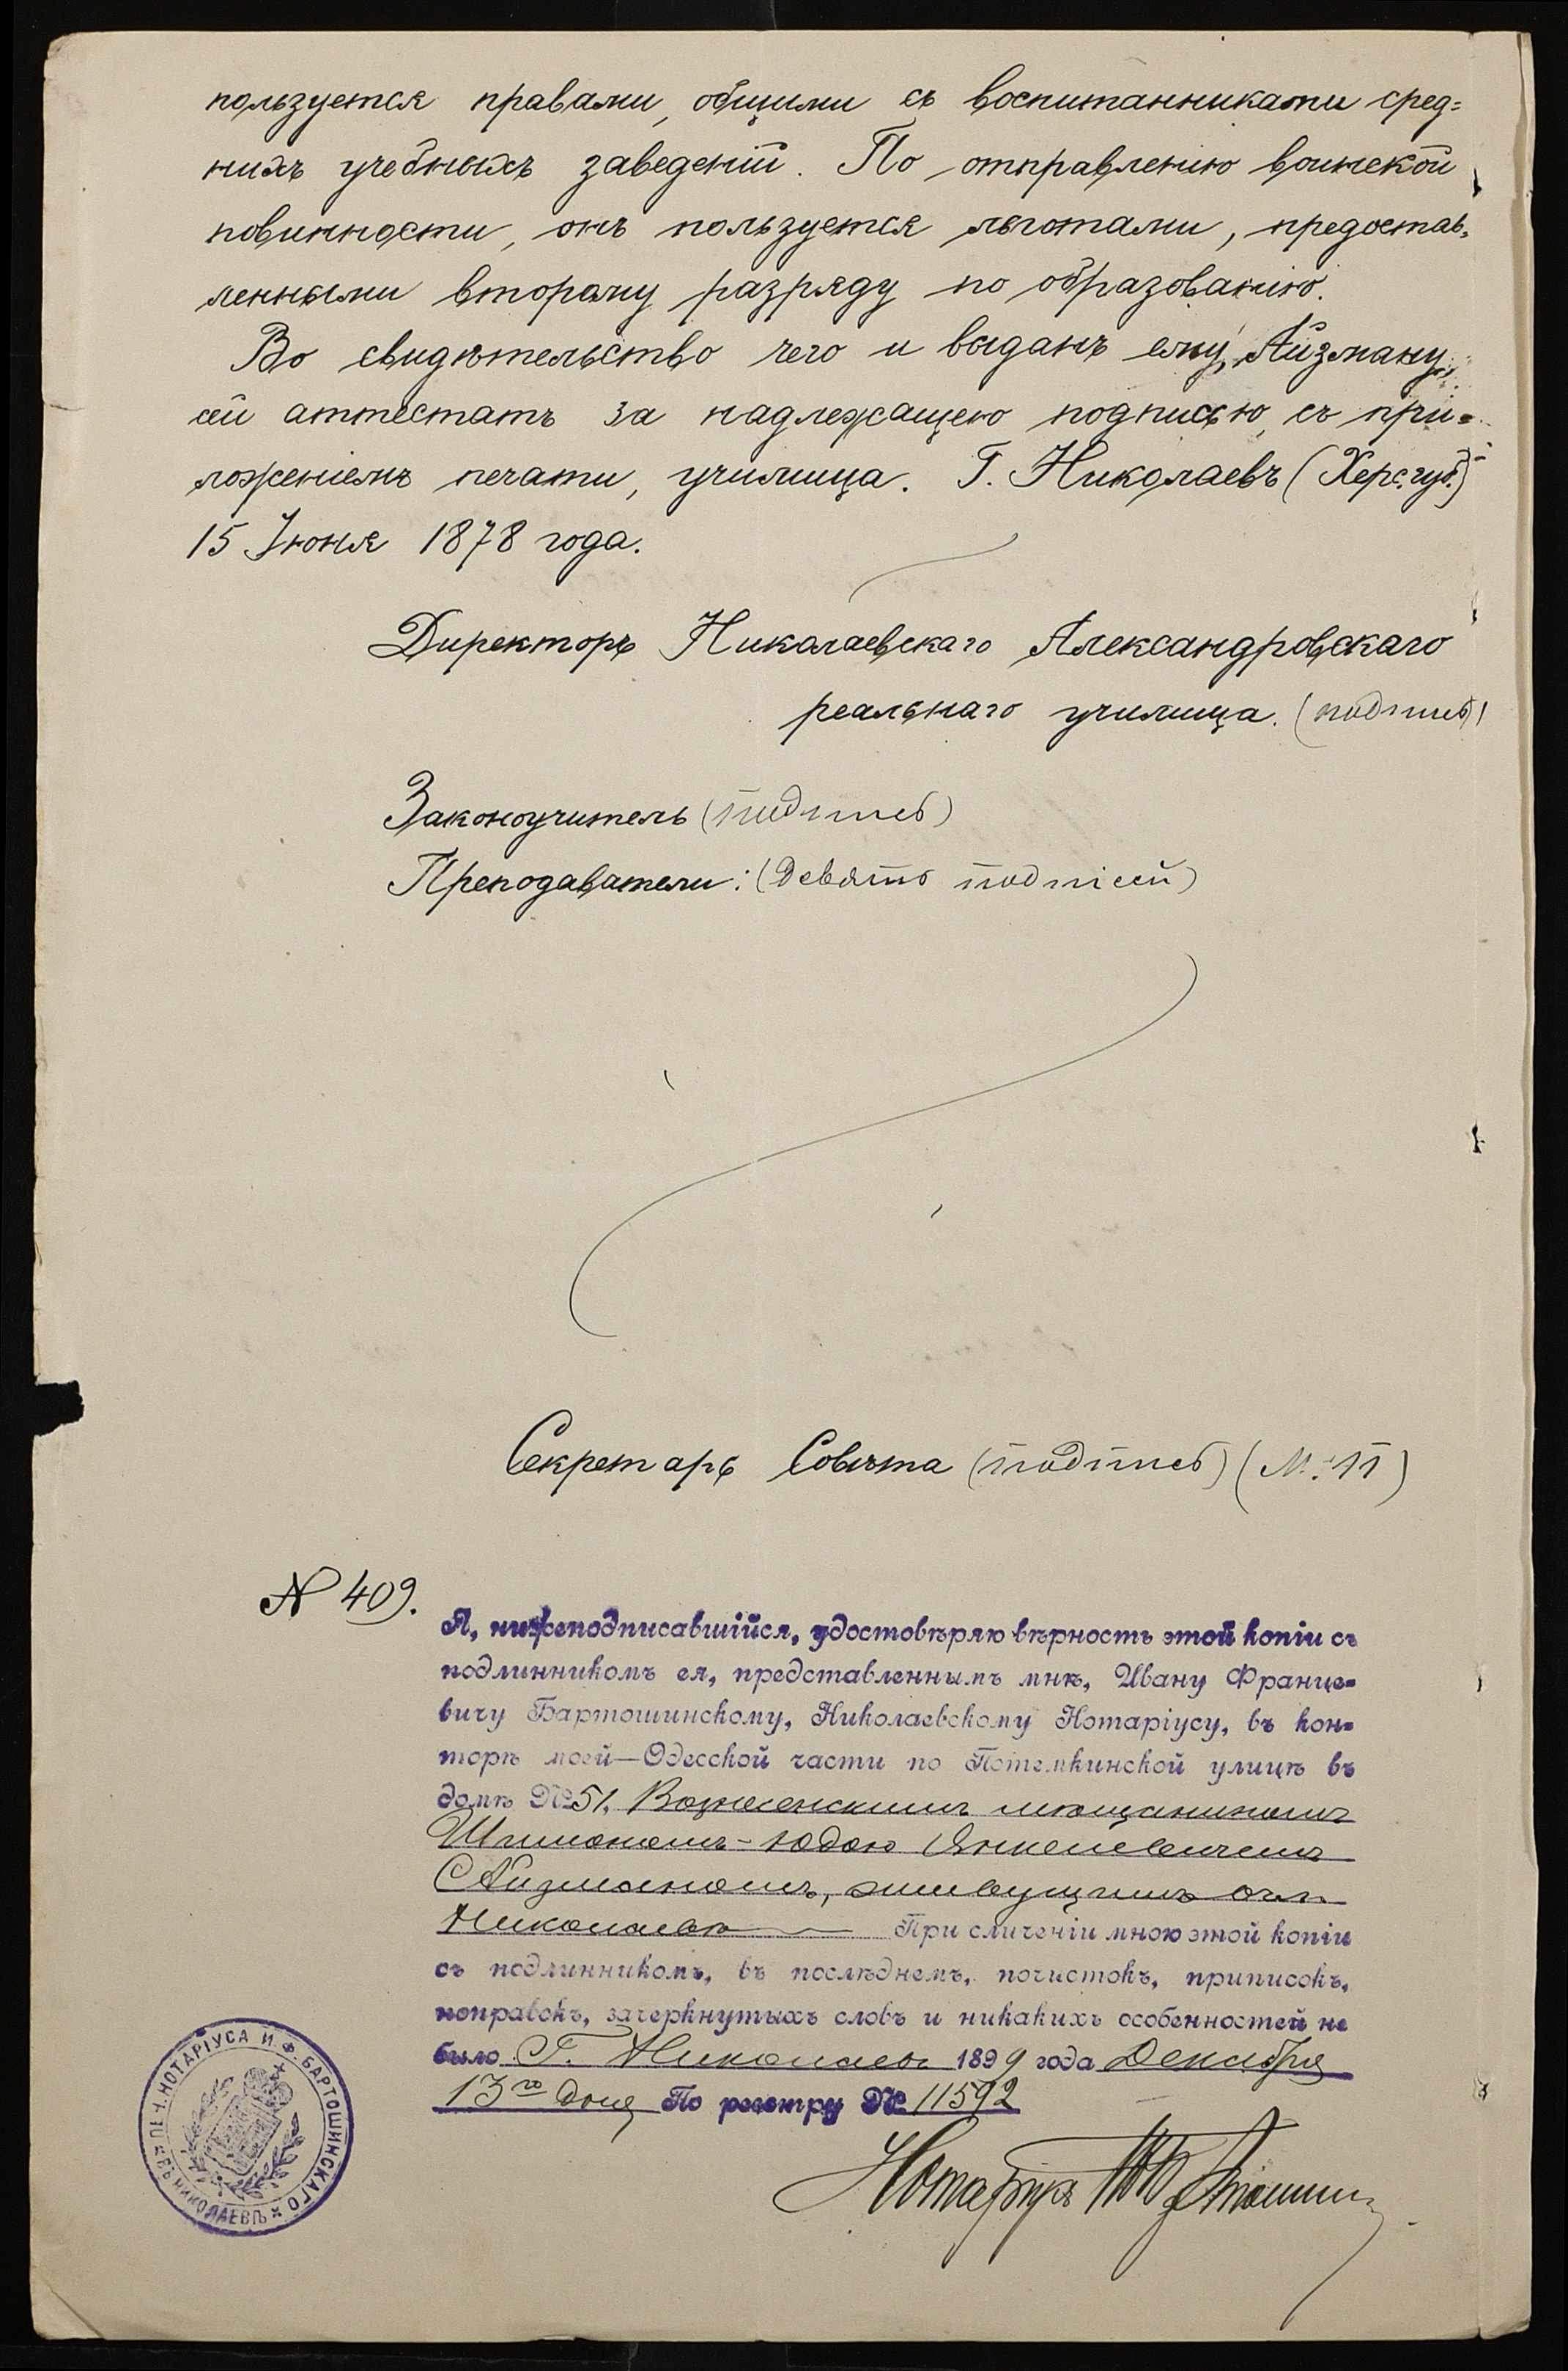 пользуется правами, общими съ воспитанниками сред=
нихъ учебныхъ заведеній. По отправленію воинской
повинности, онъ пользуется льготами, предостав=
ленными второму разряду по образованію.
Во свидѣтельство чего и выданъ ему, Айзману,
сей аттестатъ за надлежащею подписью, съ при=
ложеніемъ печати, училища. Г. Николаевъ (Херс. губ.)
15 Іюня 1878 года.
Директоръ Николаевскаго Александровскаго
реальнаго училища. (подпись)
Законоучитель (подпись)
Преподаватели: (девять подписей)
Секретарь Совѣта (подпись) (М. П)
N 409.
Я, нижеподписавшійся, удостовѣряю вѣрность этой копіи съ
подлинникомъ ея, представленнымъ мнѣ, Ивану Францe=
вичу Бартошинскому, Николаевскому Нотаріусу, въ кон=
торѣ моей—Одесской части по Потемкинской улицѣ въ
домѣ №51, Вознесенскимъ мѣщаниномъ
Шимономъ-Юдою Янкелевичемъ
Айзманомъ, живущимъ въ г.
Николаевѣ При сличеніи мною этой копіи
съ подлинникомъ, въ послѣднемъ, почистокъ, приписокъ,
поправокъ, зачеркнутыхъ словъ и никакихъ особенностей не
было Г. Николаевъ 1899 года Декабря
13го дня По реестру № 11592
Нотаріусъ
ПЕЧ. НОТАРІУСА И. Ф. БАРТОШИНСКАГО
ВЪ НИКОЛАЕВѢ